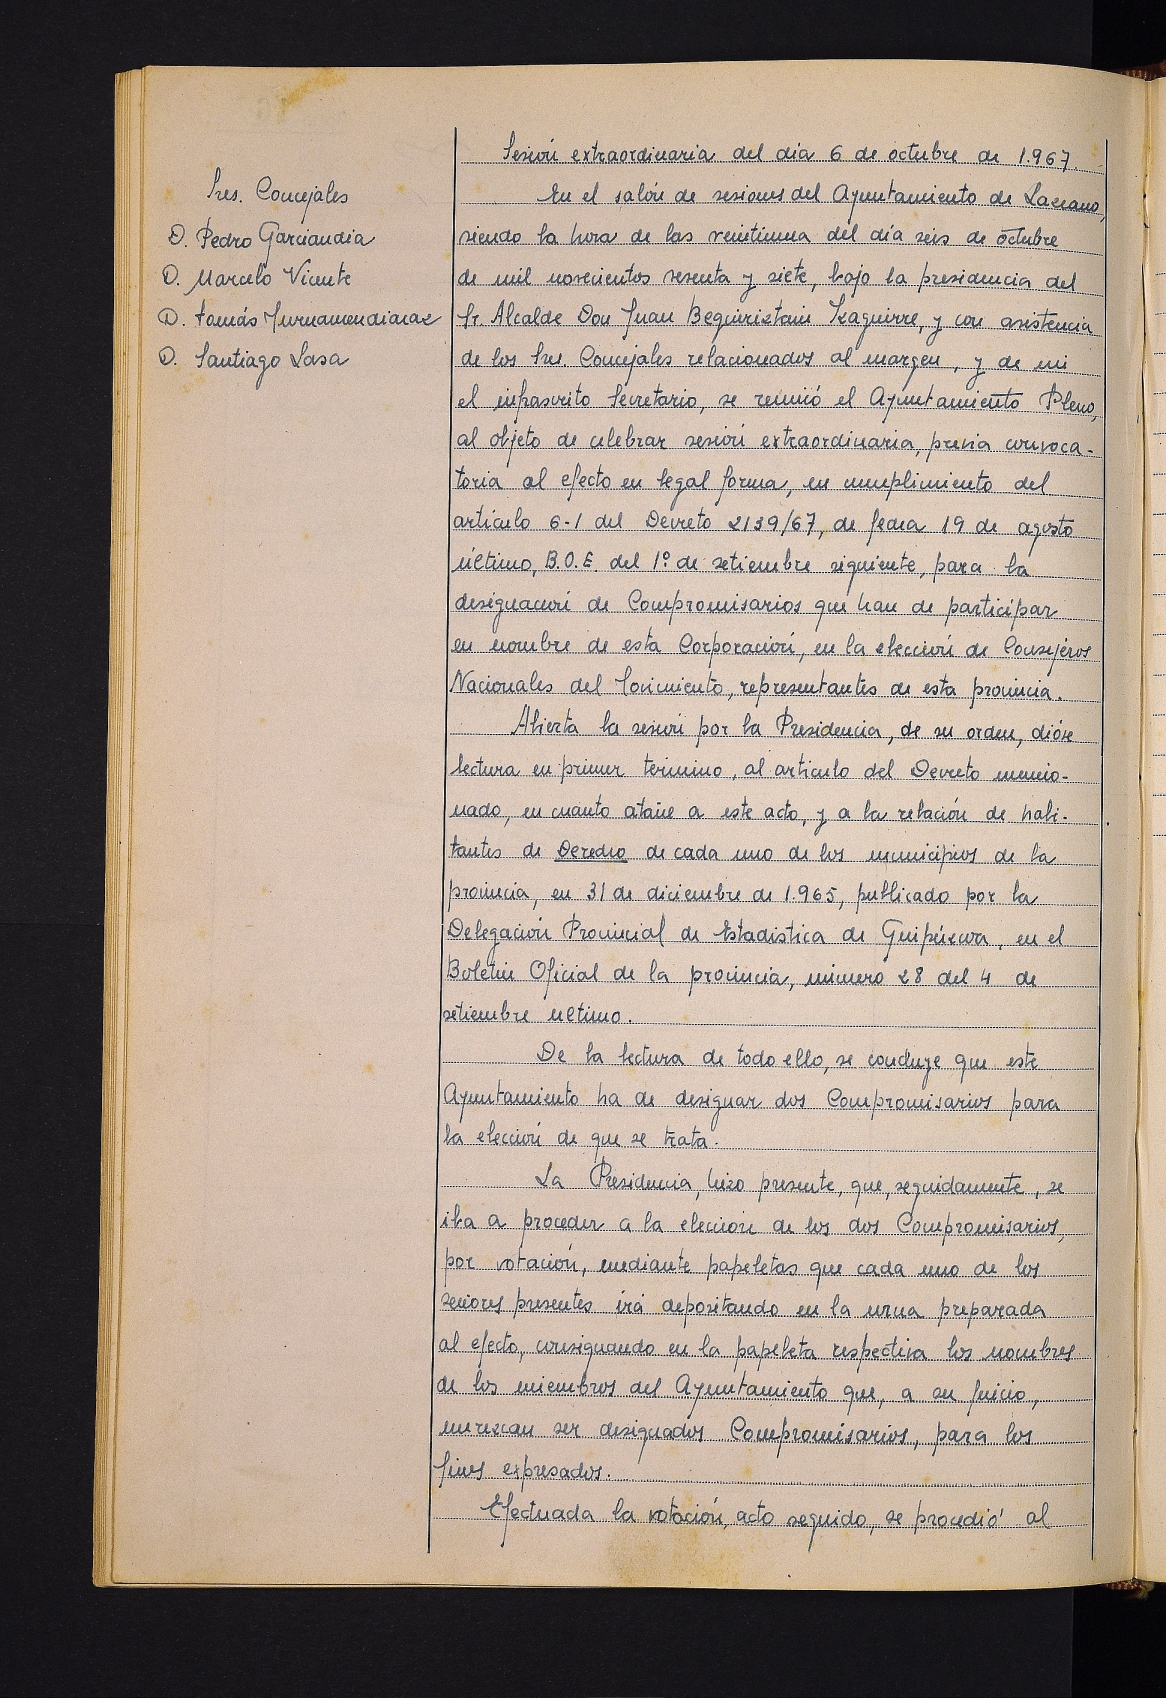 Sesión extraordinaria del día 6 de octubre de 1.967.
Sres. Concejales
D. Pedro Garciandia
D. Marcelo Vicente
D. Tomás Murnamendiaraz
D. Santiago Lasa
En el salón de sesiones del Ayuntamiento de Lazcano,
siendo la hora de las veintiuna del día seis de octubre
de mil novecientos sesenta y siete, bajo la presidencia del
Sr. Alcalde Don Juan Beguiristain Izaguirre, y con asistencia
de los Sres. Concejales relacionados al margen, y de mi
el infrascrito Secretario, se reunió el Ayuntamiento Pleno,
al objeto de celebrar sesión extraordinaria, previa convoca-
toria al efecto en legal forma, en cumplimiento del
artículo 6-1 del Decreto 2139/67, de fecha 19 de agosto
último, B.O.E. del 1º de setiembre siguiente, para la
designación de Compromisarios que han de participar
en nombre de esta Corporación, en la elección de Consejeros
Nacionales del Movimiento, representantes de esta provincia.
Abierta la sesión por la Presidencia, de su orden, dióse
lectura en primer termino, al articulo del Decreto mencio-
nado, en cuanto atañe a este acto, y a la relación de habi-
tantes de Derecho de cada uno de los municipios de la
provincia, en 31 de diciembre de 1.965, publicado por la
Delegación Provincial de Estadistica de Guipúzcoa, en el
Boletin Oficial de la provincia, número 28 del 4 de
setiembre ultimo.
De la lectura de todo ello, se concluye que este
Ayuntamiento ha de designar dos Compromisarios para
la elección de que se trata.
La Presidencia, hizo presente, que, seguidamente, se
iba a proceder a la elección de los dos Compromisarios,
por votación, mediante papeletas que cada uno de los
señores presentes irá depositando en la urna preparada
al efecto, consignando en la papeleta respectiva los nombres
de los miembros del Ayuntamiento que, a su juicio,
merezcan ser designados Compromisarios, para los
fines expresados.
Efectuada la votación, acto seguido, se procedió al